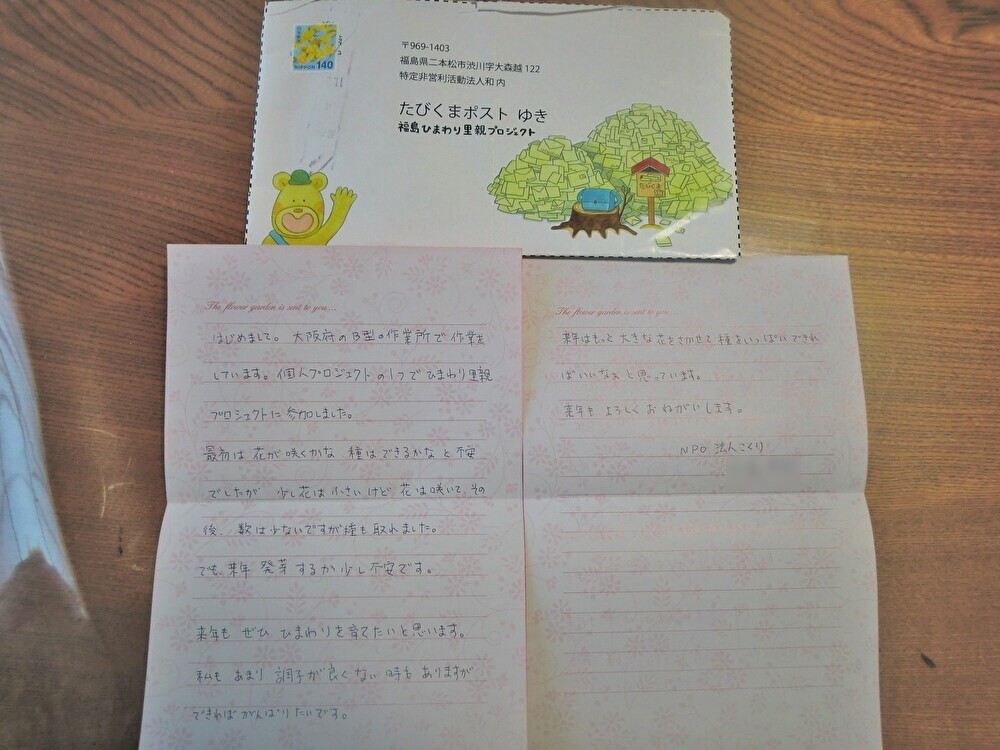 NIPPON 140
〒969-1403
福島県二本松市渋川字大森越 122
特定非営利活動法人和 内
たびくまポスト ゆき
福島ひまわり里親プロジェクト
たびくま
The flower garden is sent to you...
はじめまして。大阪府のB型の作業所で作業を
しています。個人プロジェクトの1つでひまわり里親
プロジェクトに参加しました。
最初は花が咲くかな 種はできるかなと不安
でしたが 少し花は小さいけど 花は咲いて、その
後、数は少ないですが種も取れました。
でも、来年 発芽するか少し不安です。
来年も ぜひ ひまわりを育てたいと思います。
私も あまり 調子が良くない時もありますが
できればがんばりたいです。
The flower garden is sent to you...
来年はもっと大きな花をさかせて種をいっぱいできれ
ばいいなぁと思っています。
来年もよろしくおねがいします。
NPO法人こくり